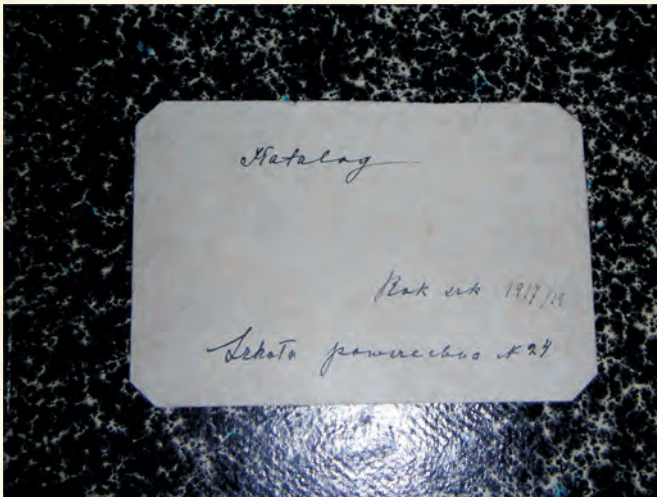 Katalog
Rok szk
Szkoła powszechna N 24